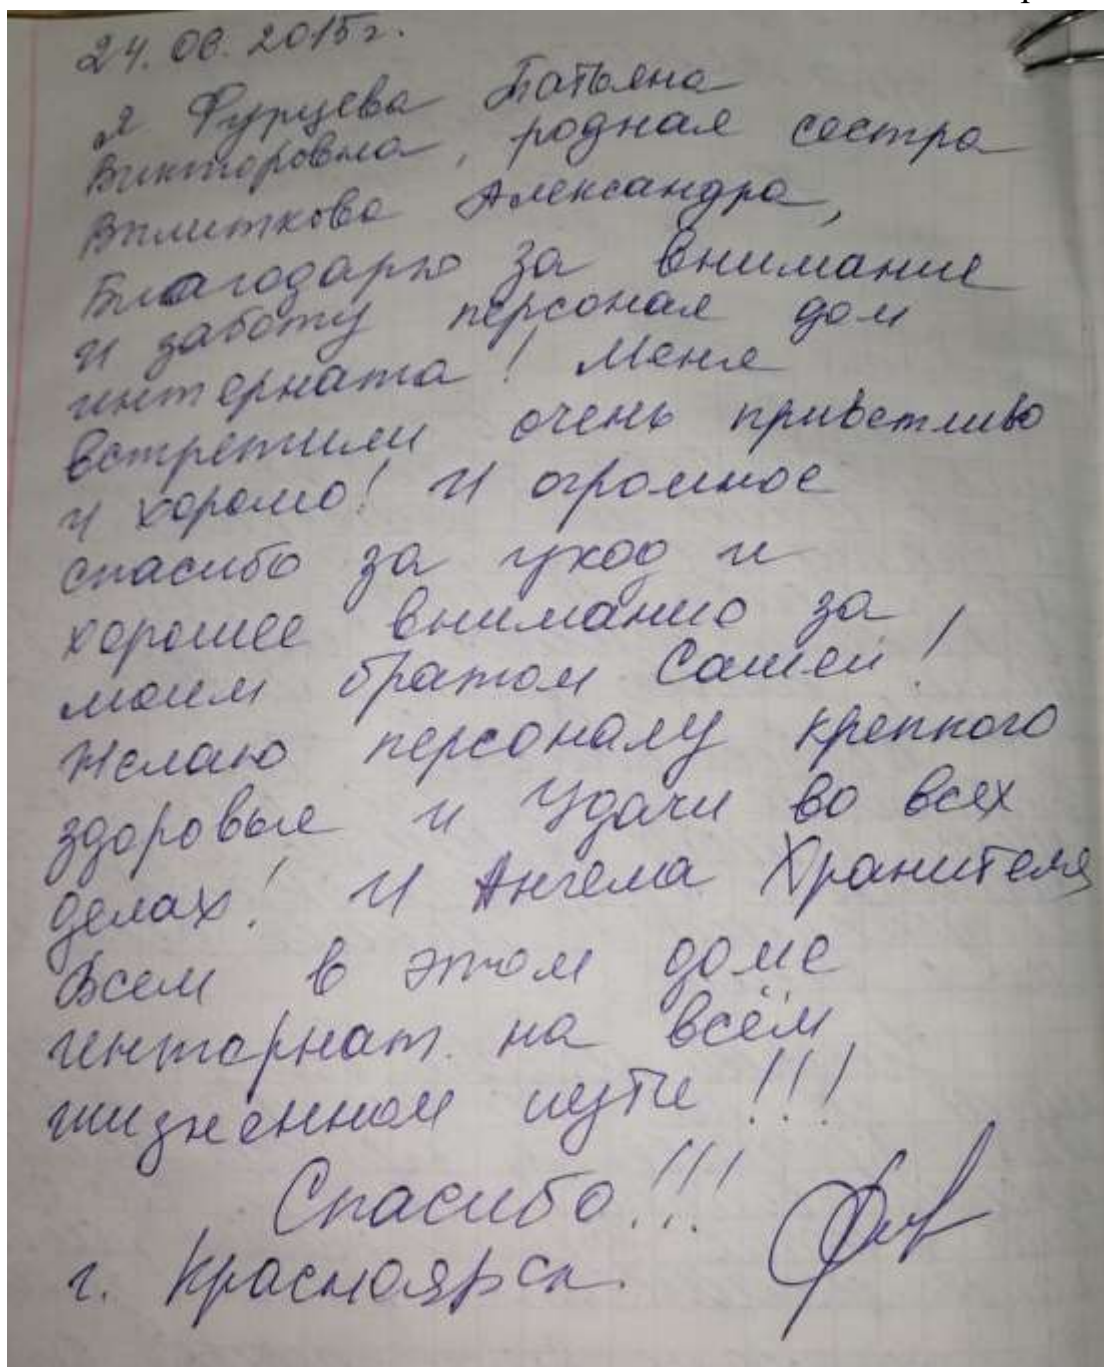 24. 06. 2015г.
Я Фурцева Татьяна
Викторовна, родная сестра
Александра,
Благодарю за внимание
и заботу персонал дом
интерната! Меня
встретили очень приветливо
и хорошо! И огромное
спасибо за уход и
хорошее внимание за
моим братом Сашей!
Желаю персоналу крепкого
здоровье и Удачи во всех
делах! И Ангела Хранителя
Всем в этом доме
интернат. на всём
жизненном пути!!!
Спасибо!!!
г. Красноярск.